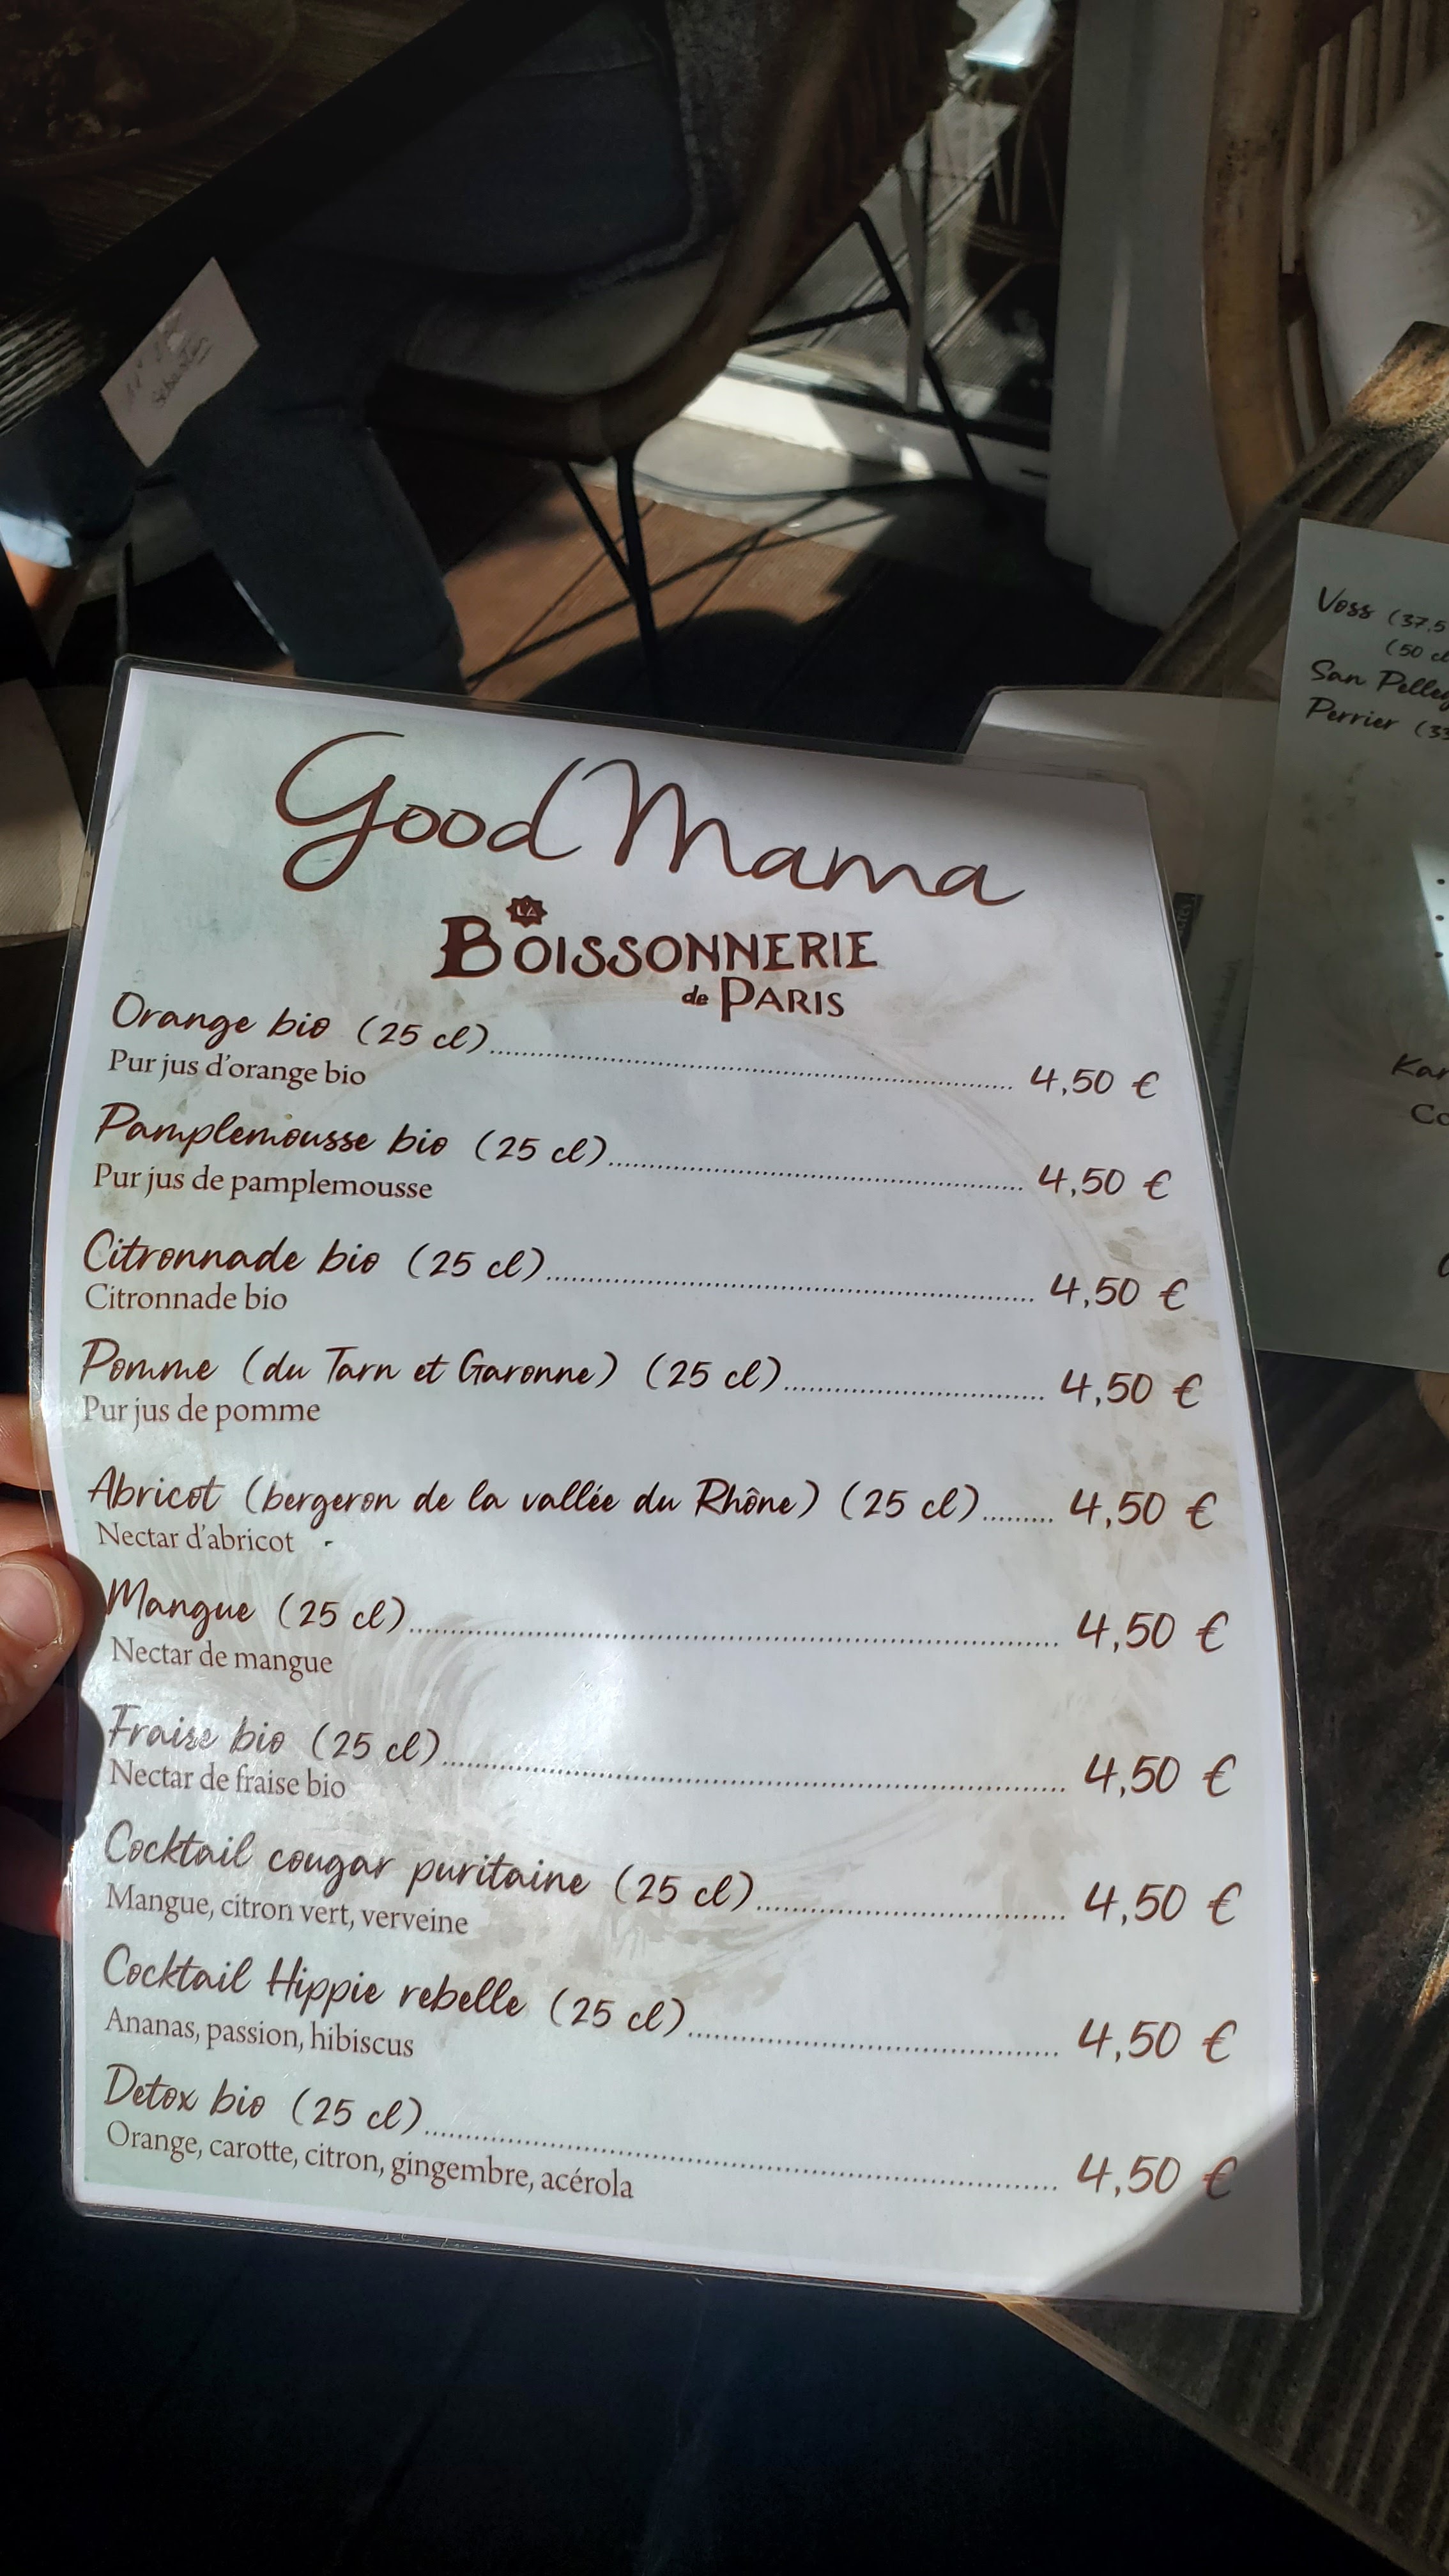 Good Mama
LA
BOISSONNERIE
de PARIS
Orange bio (25 cl) 4,50 €
Pur jus d'orange bio
Pamplemousse bio (25 cl) 4,50 €
Pur jus de pamplemousse
Citronnade bio (25 cl) 4,50 €
Citronnade bio
Pomme (du Tarn et Garonne) (25 cl) 4,50 €
Pur jus de pomme
Abricot (bergeron de la vallée du Rhône) (25 cl) 4,50 €
Nectar d'abricot
Mangue (25 cl) 4,50 €
Nectar de mangue
Fraise bio (25 cl) 4,50 €
Nectar de fraise bio
Cocktail cougar puritaine (25 cl) 4,50 €
Mangue, citron vert, verveine
Cocktail Hippie rebelle (25 cl) 4,50 €
Ananas, passion, hibiscus
Detox bio (25 cl) 4,50 €
Orange, carotte, citron, gingembre, acérola
Voss (37,5
(50 cl
San Pelleg
Perrier (33
Kar
Co